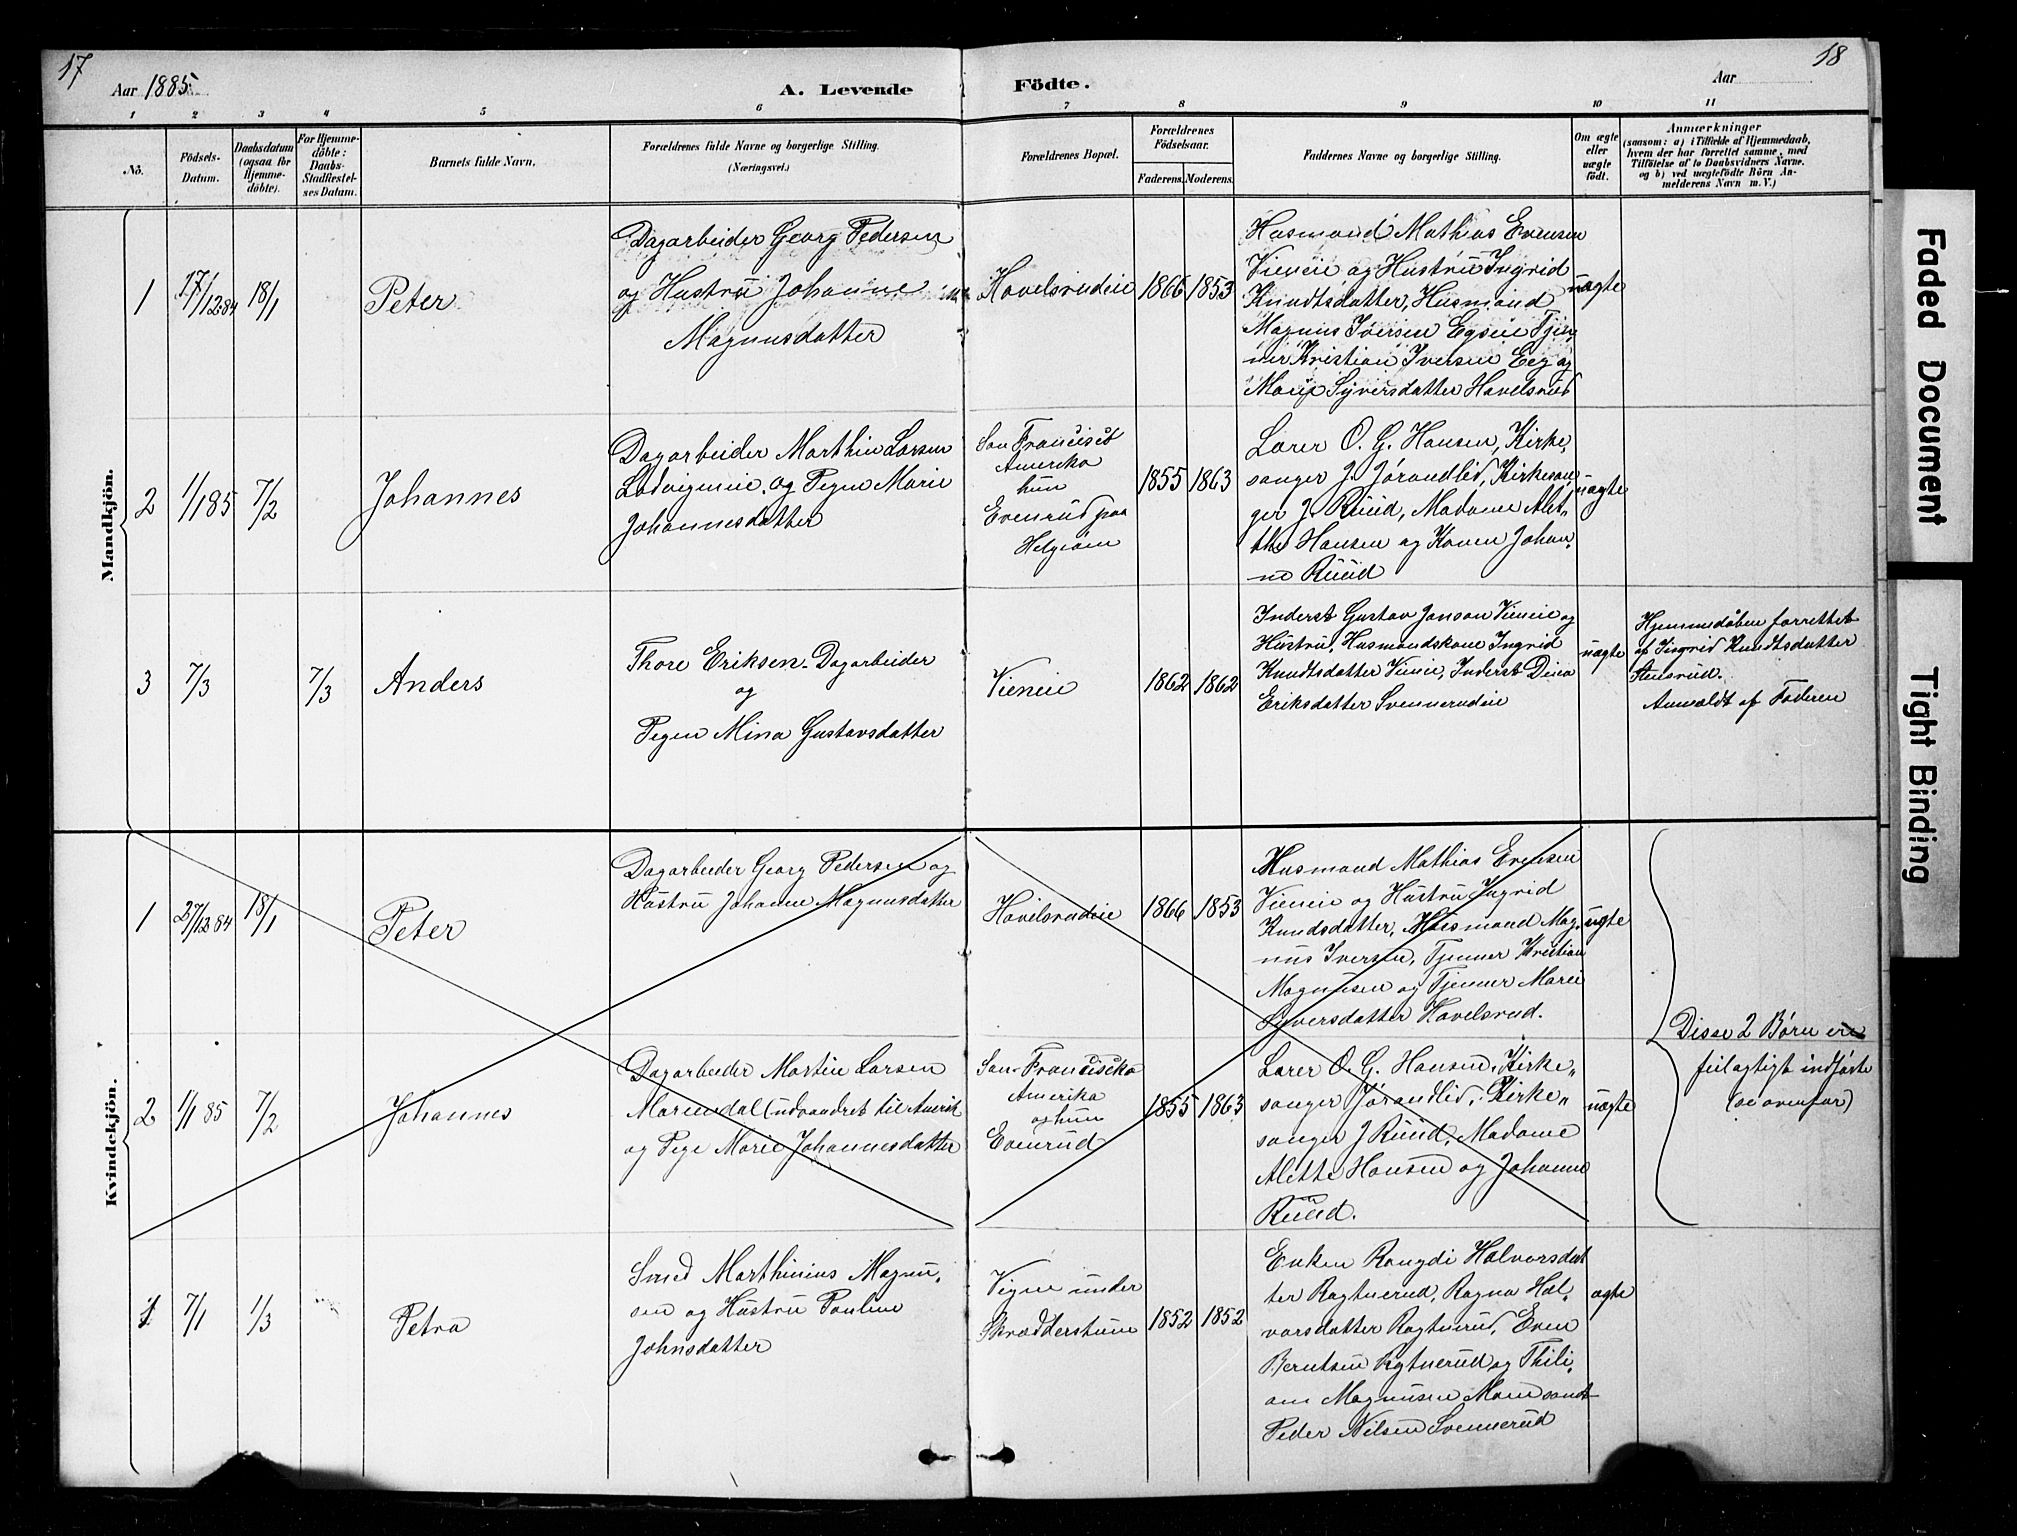 17
18
Aar 1885
A. Levende
Födte.
Aar
1 2 3 4 5 6 7 8 9 10 11
No.
Födsels-Datum.
Daabsdatum (ogsaa for Hjemmedöbte).
For Hjemmedöbte: Daabs-Stadfæstelses Datum.
Barnets fulde Navn.
Forældrenes fulde Navne og borgerlige Stilling.
(Næringsvei.)
Forældrenes Bopæl.
Forældrenes Födselsaar.
Faderens. Moderens.
Faddernes Navne og borgerlige Stilling.
Om ægte eller uægte födt.
Anmærkninger
(saasom: a) i Tilfælde af Hjemmedaab,
hvem der har forrettet samme, med
Tilföielse af to Daabsvidners Navne.
og b) ved uægtefödte Börn An-
melderens Navn m. V.)
Mandkjön.
1
17/12 84
18/1
Peter
Dagarbeider Georg Pedersen
og Hustru Johanne
Magnusdatter
Havelsrudeie
1866 1853
Husmand Mathias Evensen
Vieneie og Hustru Ingrid
Knudtsdatter, Husmand
Magnus Iversen Egseie Tjen-
ner Kristian Iversen Eeg og
Marie Syversdatter Havelsrud
uægte
2
1/1 85
7/2
Johannes
Dagarbeider Marthin Larsen
og Pigen Marie
Johannesdatter
San Francisco
Amerika
hun
Evenrud paa
Helgøen
1855 1863
Lærer O. G. Hansen, Kirke-
sanger J. Jørandlid, Kirkesan-
ger J. Ruud, Madame Alet-
the Hansen og Konen Johan-
ne Ruud
uægte
3
7/3
7/3
Anders
Thore Eriksen Dagarbeider
og
Pigen Mina Gustavsdatter
Vieneie
1862 1862
Inderst Gustav Janson Vieneie og
Hustru, Husmandskone Ingrid
Knudtsdatter Vieneie, Inderst Dina
Eriksdatter Svennerudeie
uægte
Hjemmedåben forrettet
af Ingrid Knudtsdatter
Stensrud.
Anmeldt af Faderen
Kvindekjön.
1
27/12 84
18/1
Peter
Dagarbeider Georg Pedersen og
Hustru Johanne Magnusdatter
Havelsrudeie
1866 1853
Husmand Mathias Evensen
Vieneie og Hustru Ingrid
Knudsdatter, Husmand Mag-
nus Iversen, Tjenner Kristian
Magnusen og Tjenner Marie
Syversdatter Havelsrud.
uægte
2
1/1 85
7/2
Johannes
Dagarbeider Martin Larsen
Mariendal (udvandret til Amerik
og Pige Marie Johannesdatter
San-Francisiko
Amerika
og hun
Evenrud
1855 1863
Lærer O. G. Hansen, Kirke-
sanger Jørandlid, Kirke-
sanger J Ruud, Madame
Alette Hansen og Johanne
Ruud.
uægte
Disse 2 Børn ere
feilagtigt indførte
(se ovenfor)
1
7/1
1/3
Petra
Smed Marthinius Magnu-
sen og Hustru Pauline
Johnsdatter
Vigne under
Skrædderstuen
1852 1852
Enken Rangdi Halvorsdat
ter Ragtnerud, Ragna Hal-
vorsdatter Ragtnerud, Even
Berntsen Rgtnerud og Thili-
Magnusen
Peder Nilsen Svennerud
ægte
Faded Document
Tight Binding